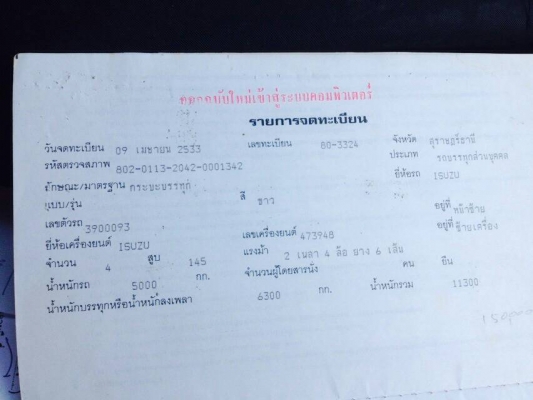 ออกฉบับใหม่เข้าสู่ระบบคอมพิวเตอร์
รายการจดทะเบียน
วันจดทะเบียน 09 เมษายน 2533 เลขทะเบียน 80-3324 จังหวัด สุราษฎร์ธานี
รหัสตรวจสภาพ 802-0113-2042-0001342 ประเภท รถบรรทุกส่วนบุคคล
ลักษณะ/มาตรฐาน กระบะบรรทุก ยี่ห้อรถ ISUZU
แบบ/รุ่น สี ขาว
เลขตัวรถ 3900093 เลขเครื่องยนต์ 473948 อยู่ที่ หน้าซ้าย
ยี่ห้อเครื่องยนต์ ISUZU อยู่ที่ ซ้ายเครื่อง
จำนวน 4 สูบ 145 แรงม้า 2 เพลา 4 ล้อ ยาง 6 เส้น
น้ำหนักรถ 5000 กก. จำนวนผู้โดยสารนั่ง คน ยืน
น้ำหนักบรรทุกหรือน้ำหนักลงเพลา 6300 กก. น้ำหนักรวม 11300